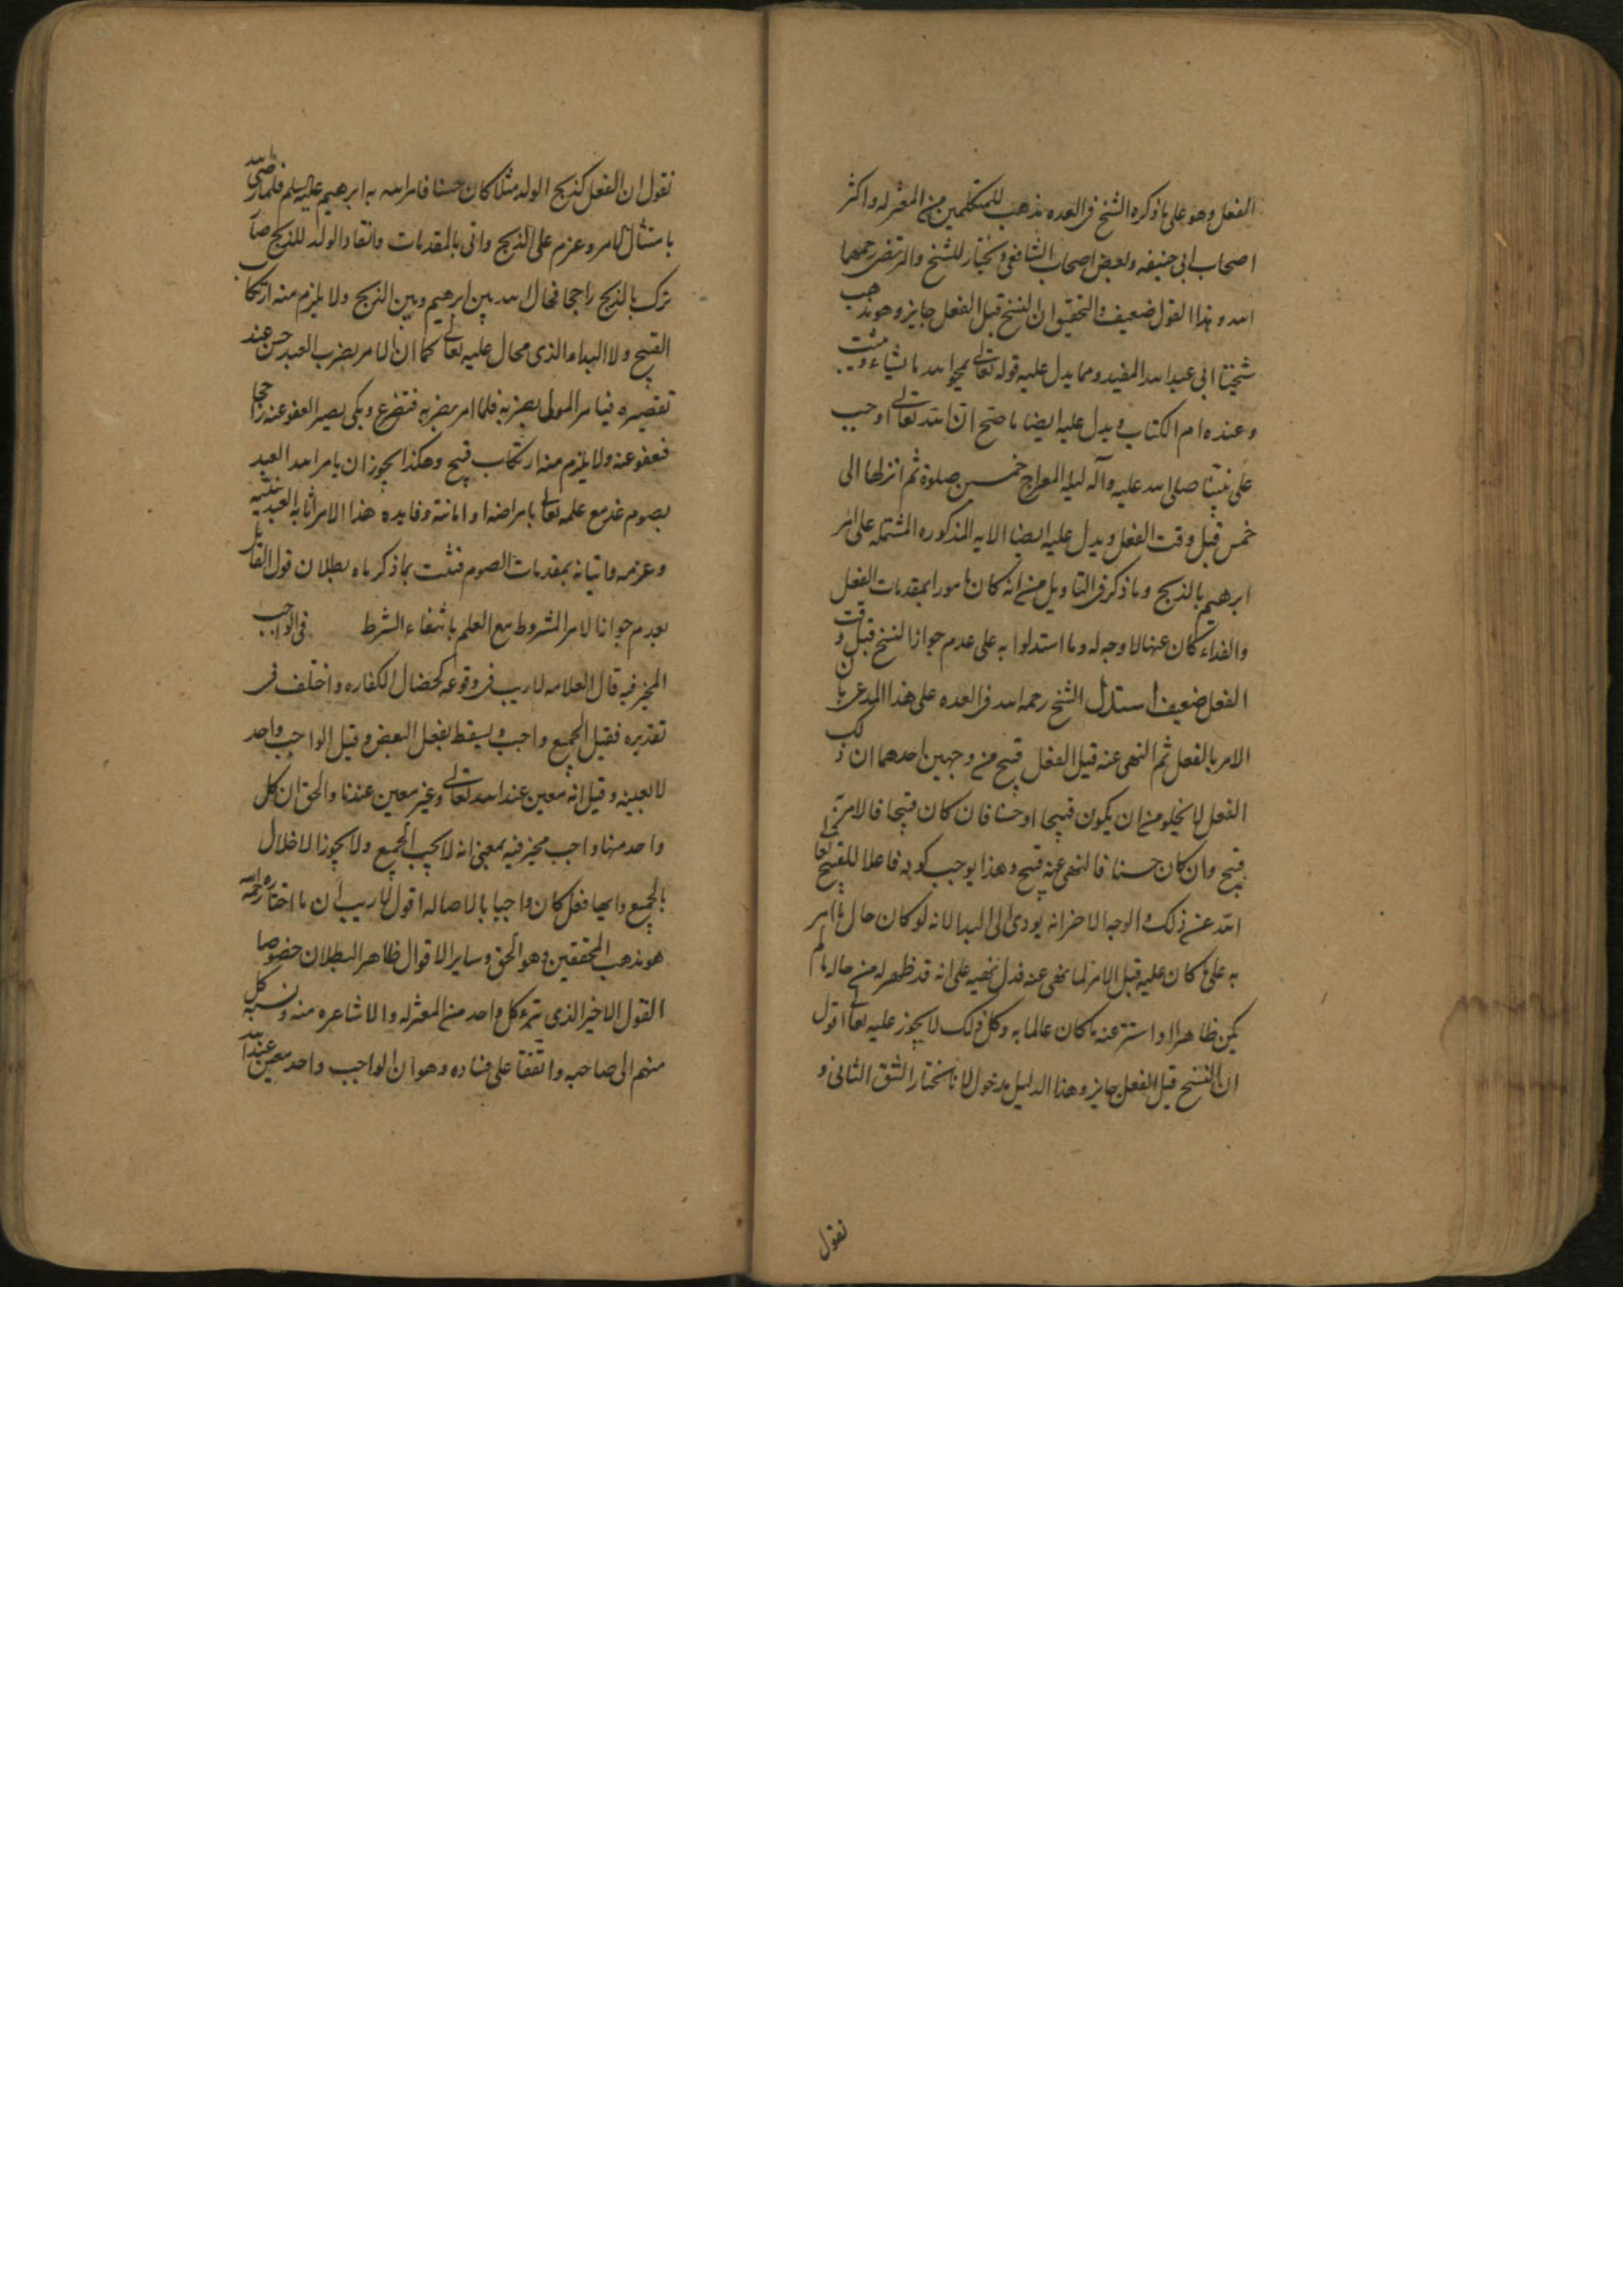 الفعل وهو على ما ذكره الشيخ فى العده مذهب للمتكلمين من المعتزله واكثر
اصحاب ابى حنيفه وبعض اصحاب الشافعى ومختار للشيخ والمرتضى رحمهما
الله وهذا القول ضعيف والتحقيق ان النسخ قبل الفعل جايز وهو مذهب
شيخنا ابى عبد الله المفيد ومما يدل عليه قوله تعالى يمحوا الله ما يشاء ويثبت
وعنده ام الكتاب ويدل عليه ايضا ما صح ان الله تعالى اوجب
على نبينا صلى الله عليه وآله ليلة المعراج خمسين صلوة ثم انزلها الى
خمس قبل وقت الفعل ويدل عليه ايضا الايه المذكوره المشتمله على امر
ابرهيم بالذبح وما ذكر فى التاويل من انه كان مامورا بمقدمات الفعل
والفداء كان عنها لا وجه له وما استدلوا به على عدم جواز النسخ قبل وقت
الفعل ضعيف استدل الشيخ رحمه الله فى العده على هذا المدعى بان
الامر بالفعل ثم النهى عنه قبل الفعل قبيح من وجهين احدهما ان ذلك
الفعل لا يخلو من ان يكون قبيحا او حسنا فان كان قبيحا فالامر به
قبيح وان كان حسنا فالنهى عنه قبيح وهذا يوجب كونه فاعلا للقبيح تعالى
الله عن ذلك والوجه الاخر انه يودى الى البدا لانه لو كان حال ما امر
به على ما كان عليه قبل الامر لما نهى عنه فدل نهيه على انه قد ظهر له من حاله ما لم
يكن ظاهرا او استتر عنه ما كان عالما به وكل ذلك لا يجوز عليه تعالى اقول
ان النسخ قبل الفعل جايز وهذا الدليل مدخول لانا نختار الشق الثانى و
نقول
نقول ان الفعل كذبح الولد مثلا كان حسنا فامر الله به ابرهيم عليه السلم فلما رضى الله
بامتثال الامر وعزم على الذبح واتى بالمقدمات وانقاد الولد للذبح صار
ترك الذبح راجحا فحال الله بين ابرهيم وبين الذبح ولا يلزم منه ارتكاب
القبيح ولا البداء الذى محال عليه تعالى كما ان الامر بضرب العبد حسن عند
تقصيره فيامر المولى بضربه فلما امر بضربه فتضرع وبكى يصير العفو عنه راجحا
فعفو عنه ولا يلزم منه ارتكاب قبيح وهكذا يجوز ان يامر الله العبد
بصوم غد مع علمه تعالى بامراضه او اماتته وفايده هذا الامر اثابه العبد بنيته
وعزمه واتيانه بمقدمات الصوم فثبت بما ذكرناه بطلان قول القائل
بعدم جواز الامر المشروط مع العلم بانتفاء الشرط فى الواجب
المخير فيه قال العلامه لا ريب فى وقوعه كخصال الكفاره واختلف فى
تقديره فقيل الجميع واجب ويسقط بفعل البعض وقيل الواجب واحد
لا بعينه وقيل انه معين عند الله تعالى وغير معين عندنا والحق ان كل
واحد منها واجب مخير فيه بمعنى انه لا يجب الجميع ولا يجوز الاخلال
بالجميع وايها فعل كان واجبا بالاصاله اقول لا ريب ان ما اختاره رحمه الله
هو مذهب المحققين وهو الحق وساير الاقوال ظاهر البطلان خصوصا
القول الاخير الذى تبرء كل واحد من المعتزله والاشاعره منه ونسبه كل
منهم الى صاحبه واتفقا على فساده وهو ان الواجب واحد معين عند الله